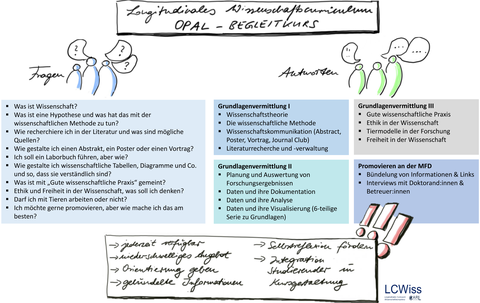 Longitudinales Wissenschaftscurriculum
OPAL - BEGLEITKURS
Fragen
? ? ?
Antworten
... ...
Was ist Wissenschaft?
Was ist eine Hypothese und was hat das mit der
wissenschaftlichen Methode zu tun?
Wie recherchiere ich in der Literatur und was sind mögliche
Quellen?
Wie gestalte ich einen Abstrakt, ein Poster oder einen Vortrag?
Soll ich ein Laborbuch führen, aber wie?
Wie gestalte ich wissenschaftliche Tabellen, Diagramme und Co.
und so, dass sie verständlich sind?
Was ist mit „Gute wissenschaftliche Praxis" gemeint?
Ethik und Freiheit in der Wissenschaft, was soll ich denken?
Darf ich mit Tieren arbeiten oder nicht?
Ich möchte gerne promovieren, aber wie mache ich das am
besten?
Grundlagenvermittlung I
Wissenschaftstheorie
Die wissenschaftliche Methode
Wissenschaftskommunikation (Abstract,
Poster, Vortrag, Journal Club)
Literaturrecherche und -verwaltung
Grundlagenvermittlung II
Planung und Auswertung von
Forschungsergebnissen
Daten und ihre Dokumentation
Daten und ihre Analyse
Daten und ihre Visualisierung (6-teilige
Serie zu Grundlagen)
Grundlagenvermittlung III
Gute wissenschaftliche Praxis
Ethik in der Wissenschaft
Tiermodelle in der Forschung
Freiheit in der Wissenschaft
Promovieren an der MFD
Bündelung von Informationen & Links
Interviews mit Doktorand:innen &
Betreuer:innen
!!!
→ jederzeit verfügbar
→ niederschwelliges Angebot
→ Orientierung geben
→ gebündelte Informationen
→ Selbstreflexion fördern
→ Integration
Studierender in
Kursgestaltung
LCWiss